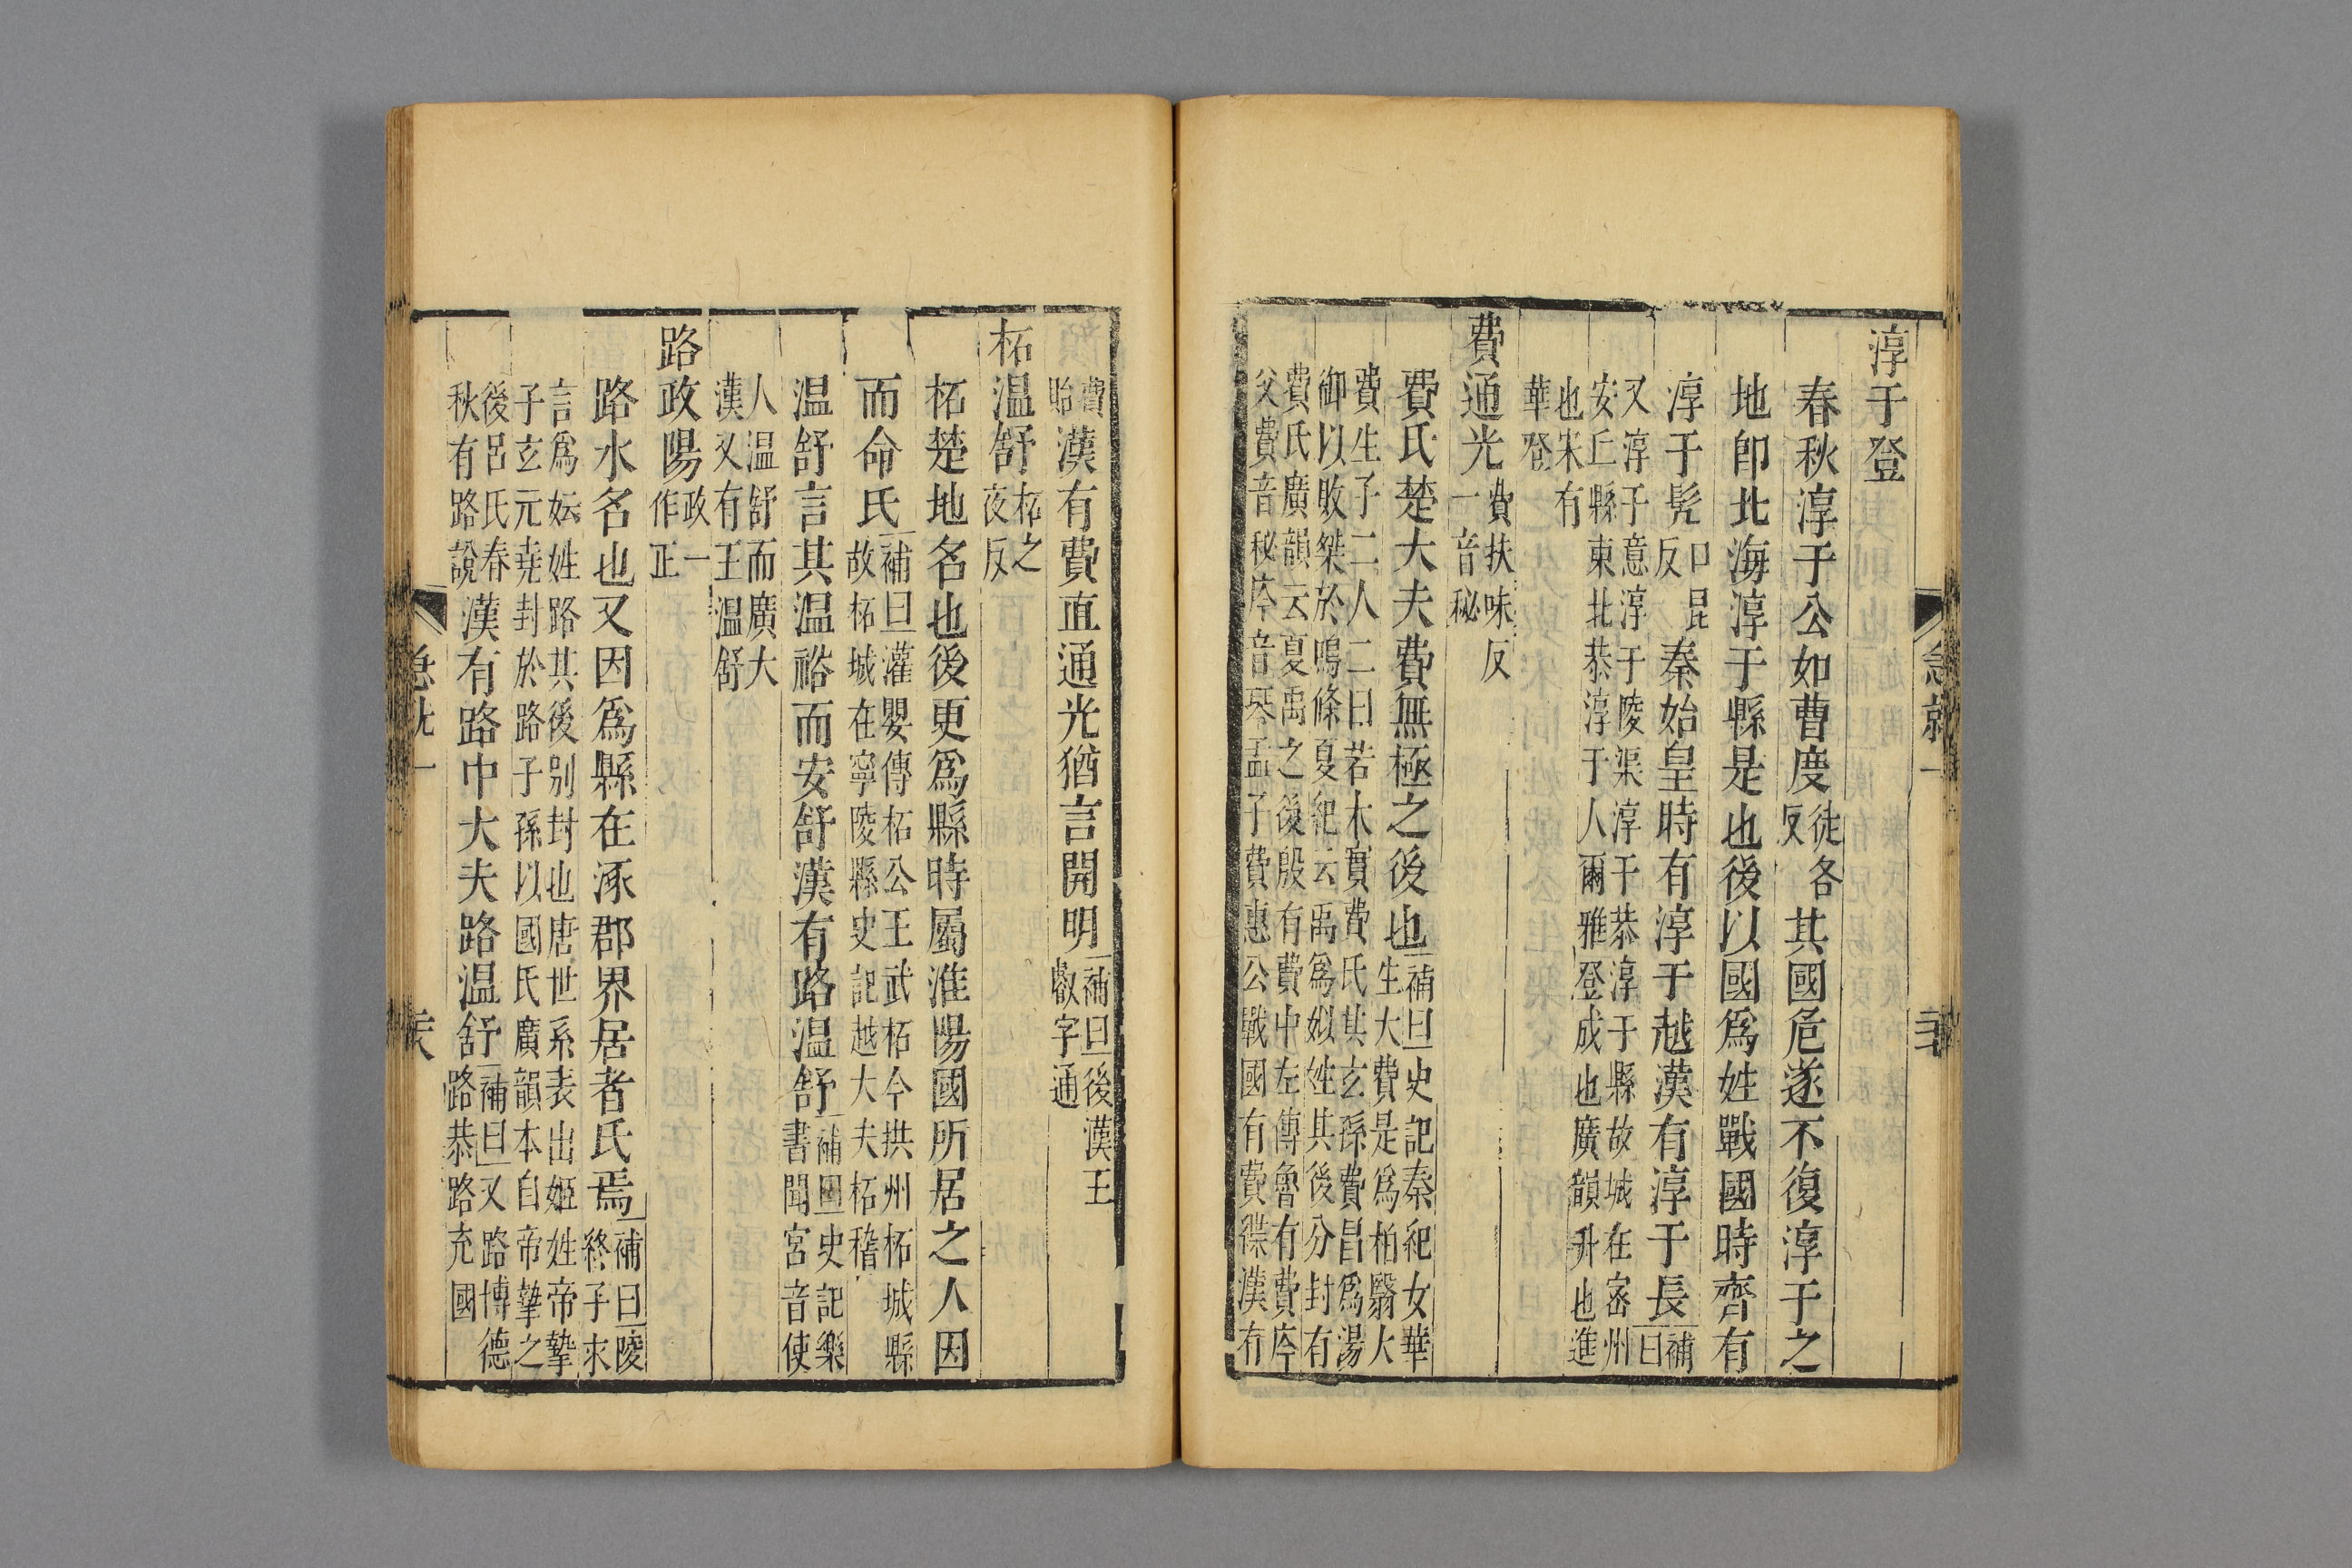 淳于登
春秋淳于公如曹度徒各反其國危遂不復淳于之
地卽北海淳于縣是也後以國爲姓戰國時齊有
淳于髠口昆反秦始皇時有淳于越漢有淳于長補曰
又淳于意淳于陵渠淳于恭淳于縣故城在密州
安丘縣東北恭淳于人爾雅登成也廣韻升也進
也宋有
華登
費通光費扶味反一音秘
費氏楚大夫費無極之後也補曰史記秦紀女華
生大費是爲柏翳大
費生子二人二曰若木實費氏其玄孫費昌爲湯
御以敗桀於鳴條夏紀云禹爲姒姓其後分封有
費氏廣韻云夏禹之後殷有費中左傳魯有費庈
父費音秘庈音琴孟子費惠公戰國有費㩴漢有
急就一
費
貽漢有費直通光猶言開明補曰後漢王
叡字通
柘温舒柘之夜反
柘楚地名也後更爲縣時屬淮陽國所居之人因
而命氏補曰灌嬰傳柘公王武柘今拱州柘城縣
故柘城在寧陵縣史記越大夫柘稽
温舒言其温裕而安舒漢有路温舒補曰史記樂
書聞宮音使
人温舒而廣大
漢又有王温舒
路政陽政一作正
路水名也又因爲縣在涿郡界居者氏焉補曰陵
終子來
言爲妘姓路其後别封也唐世系表出姬姓帝摯
子玄元堯封於路子孫以國氏廣韻本自帝摯之
後呂氏春
秋有路說漢有路中大夫路温舒補曰又路博德
路恭路充國
急就一